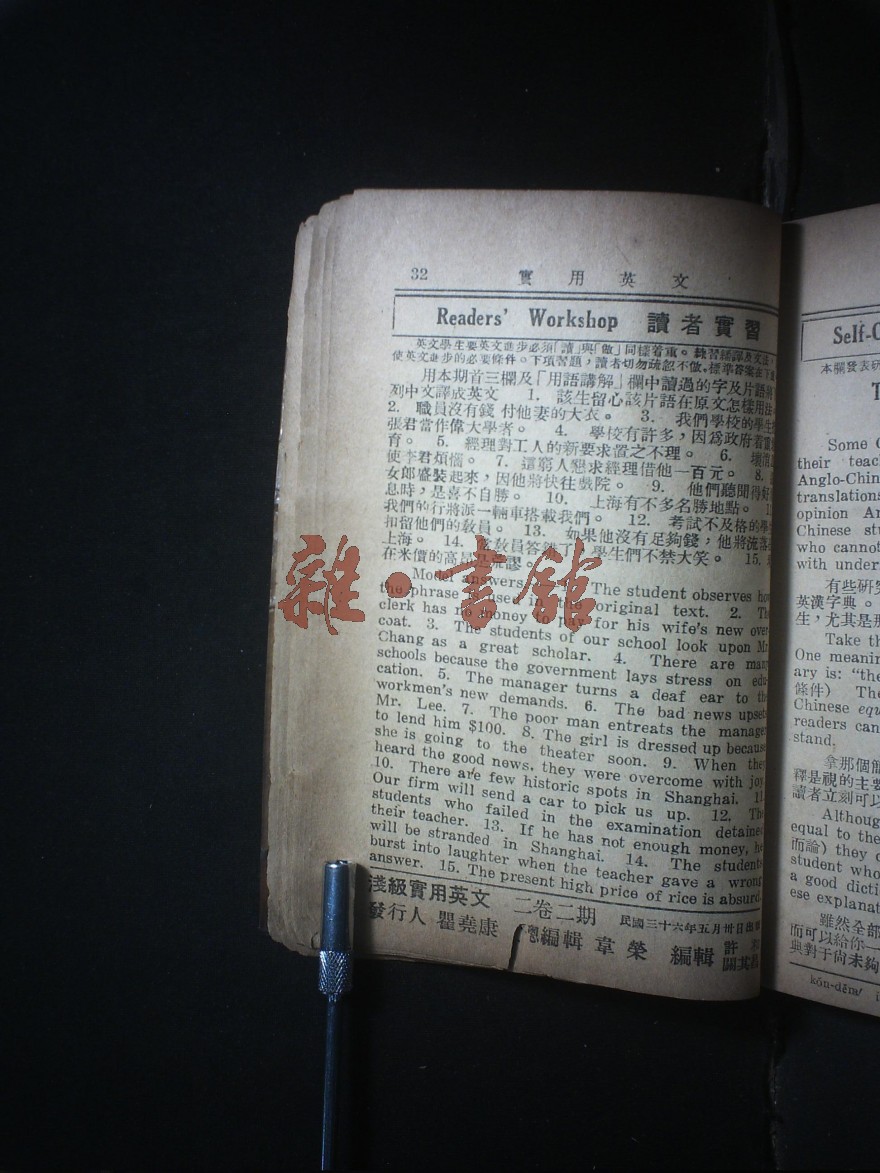 32 實用英文
Readers' Workshop 讀者實習
英文學生要英文進步必須「讀」與「做」同樣着重。練習繙譯及文法,
使英文進步的必要條件。下項習題,讀者切勿疏忽不做。標準答案在下
用本期首三欄及「用語講解」欄中讀過的字及片語將
列中文譯成英文 1. 該生留心該片語在原文怎樣用法。
2. 職員沒有錢付他妻的大衣。 3. 我們學校的學生
張君當作偉大學者。 4. 學校有許多,因爲政府着重
育。 5. 經理對工人的新要求置之不理。 6. 壞消
使李君煩惱。 7. 這窮人懇求經理借他一百元。 8.
女郎盛裝起來,因他將快往戲院。 9. 他們聽聞得好
息時,是喜不自勝。 10. 上海有不多名勝地點。 1
我們的行將派一輛車搭載我們。 12. 考試不及格的學
扣留他們的敎員。 13. 如果他沒有足夠錢,他將流落
上海。 14. 敎員答錯了 學生們不禁大笑。 15.
在米價的高是荒謬。
Model answers The student observes how
the phrase used in the original text. 2. The
clerk has no money to pay for his wife's new over-
coat. 3. The students of our school look upon Mr.
Chang as a great scholar. 4. There are many
schools because the government lays stress on edu-
cation. 5. The manager turns a deaf ear to the
workmen's new demands. 6. The bad news upsets
Mr. Lee. 7. The poor man entreats the manager
to lend him $100. 8. The girl is dressed up because
she is going to the theater soon. 9. When they
heard the good news, they were overcome with joy.
10. There are few historic spots in Shanghai. 11.
Our firm will send a car to pick us up. 12. The
students who failed in the examination detained
their teacher. 13. If he has not enough money, he
will be stranded in Shanghai. 14. The students
burst into laughter when the teacher gave a wrong
answer. 15. The present high price of rice is absurd.
淺級實用英文 二卷二期 民國三十六年五月卅日出
發行人 瞿堯康 編輯 韋榮 編輯 許
關其
雜·書舘
Self-
本欄發表研
T
Some
their teac
Anglo-Chin
translations
opinion An
Chinese stu
who cannot
with under
有些研究
英漢字典。
生,尤其是那
Take th
One meanin
ary is: "the
條件) The
Chinese equ
readers can
stand.
拿那個
釋是視的主要
讀者立刻可以
Although
equal to the
而論) they
student who
a good dictio
ese explanat
雖然全部
而可以給你一
與對于尙未夠
kŏn-dĕm'